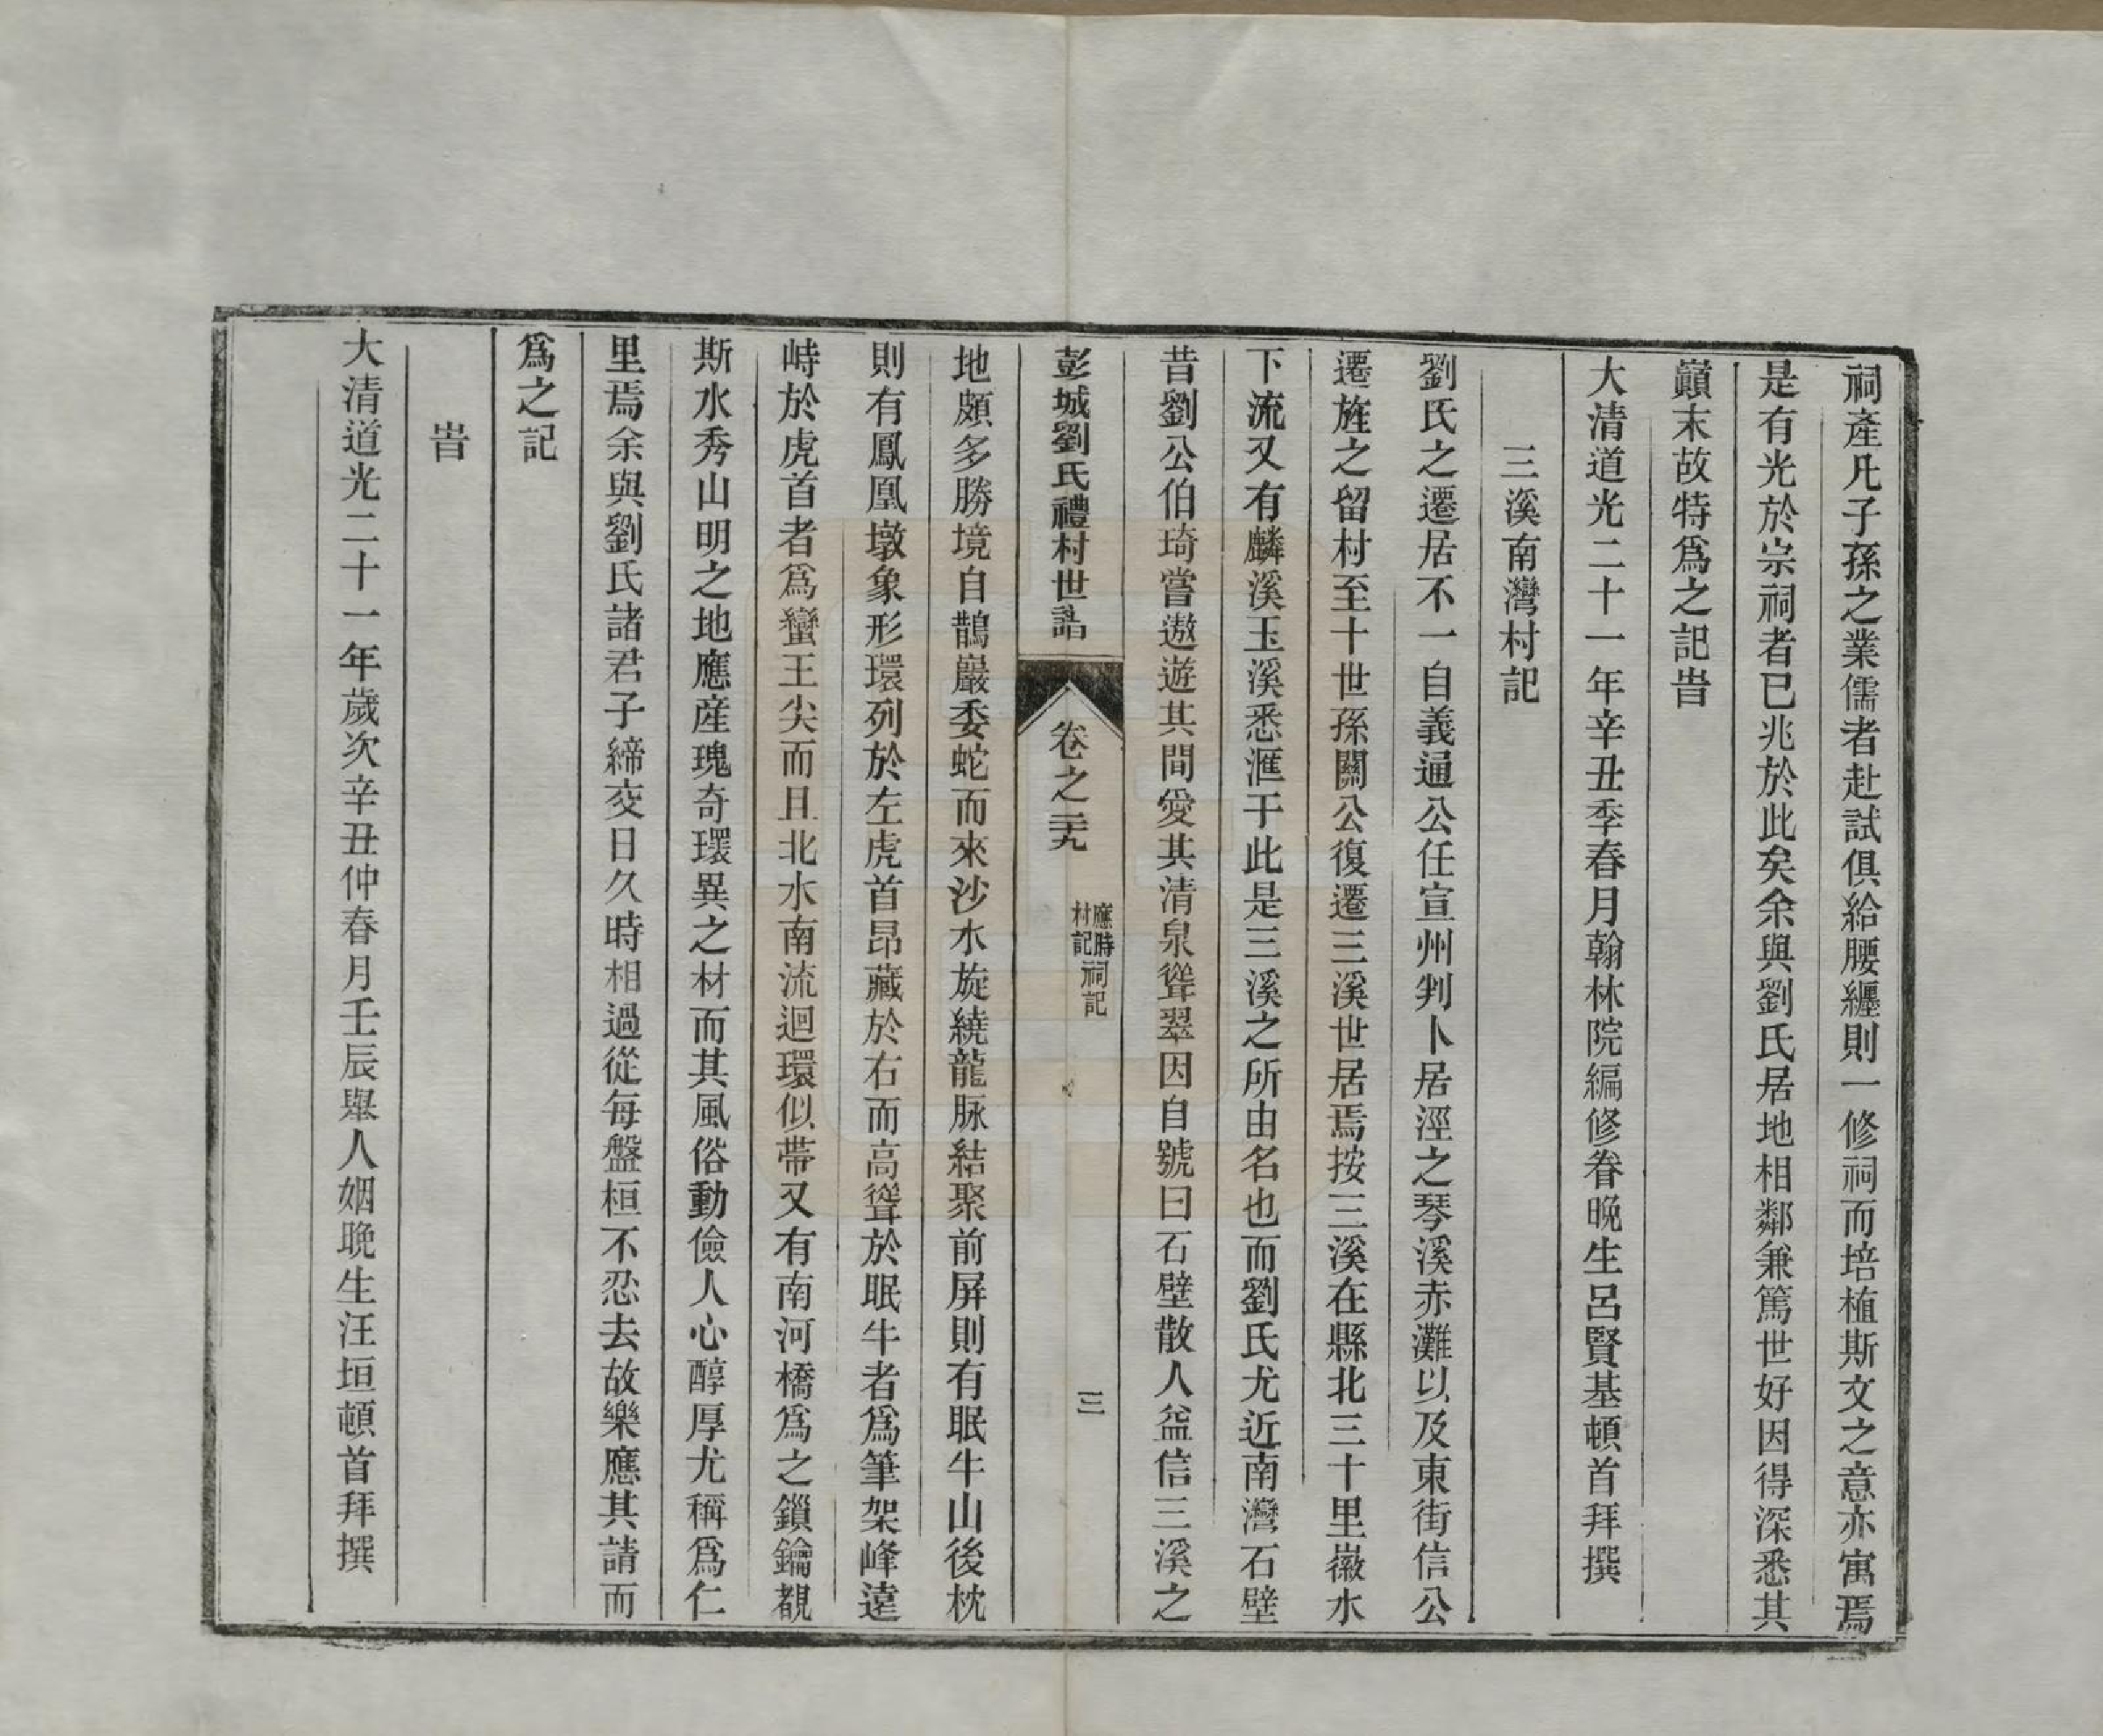 祠產凡子孫之業儒者赴試俱給腰纏則一修祠而培植斯文之意亦寓焉
是有光於宗祠者已兆於此矣余與劉氏居地相鄰兼篤世好因得深悉其
巔末故特爲之記旹
大清道光二十一年辛丑季春月翰林院編修眷晚生呂賢基頓首拜撰
三溪南灣村記
劉氏之遷居不一自義通公任宣州判卜居涇之琴溪赤灘以及東街信公
遷旌之留村至十世孫關公復遷三溪世居焉按三溪在縣北三十里徽水
下流又有麟溪玉溪悉滙于此是三溪之所由名也而劉氏尤近南灣石壁
昔劉公伯琦嘗遨遊其間愛其清泉聳翠因自號曰石壁散人益信三溪之
彭城劉氏禮村世譜
卷之二十九
應時祠記
村記
三
地頗多勝境自鵲巖委蛇而來沙水旋繞龍脉結聚前屏則有眠牛山後枕
則有鳳凰墩象形環列於左虎首昂藏於右而高聳於眠牛者爲筆架峰遠
峙於虎首者爲蠻王尖而且北水南流迴環似帶又有南河橋爲之鎖鑰覩
斯水秀山明之地應産瑰奇瓌異之材而其風俗勤儉人心醇厚尤稱爲仁
里焉余與劉氏諸君子締交日久時相過從每盤桓不忍去故樂應其請而
爲之記
旹
大清道光二十一年歲次辛丑仲春月壬辰舉人姻晚生汪垣頓首拜撰